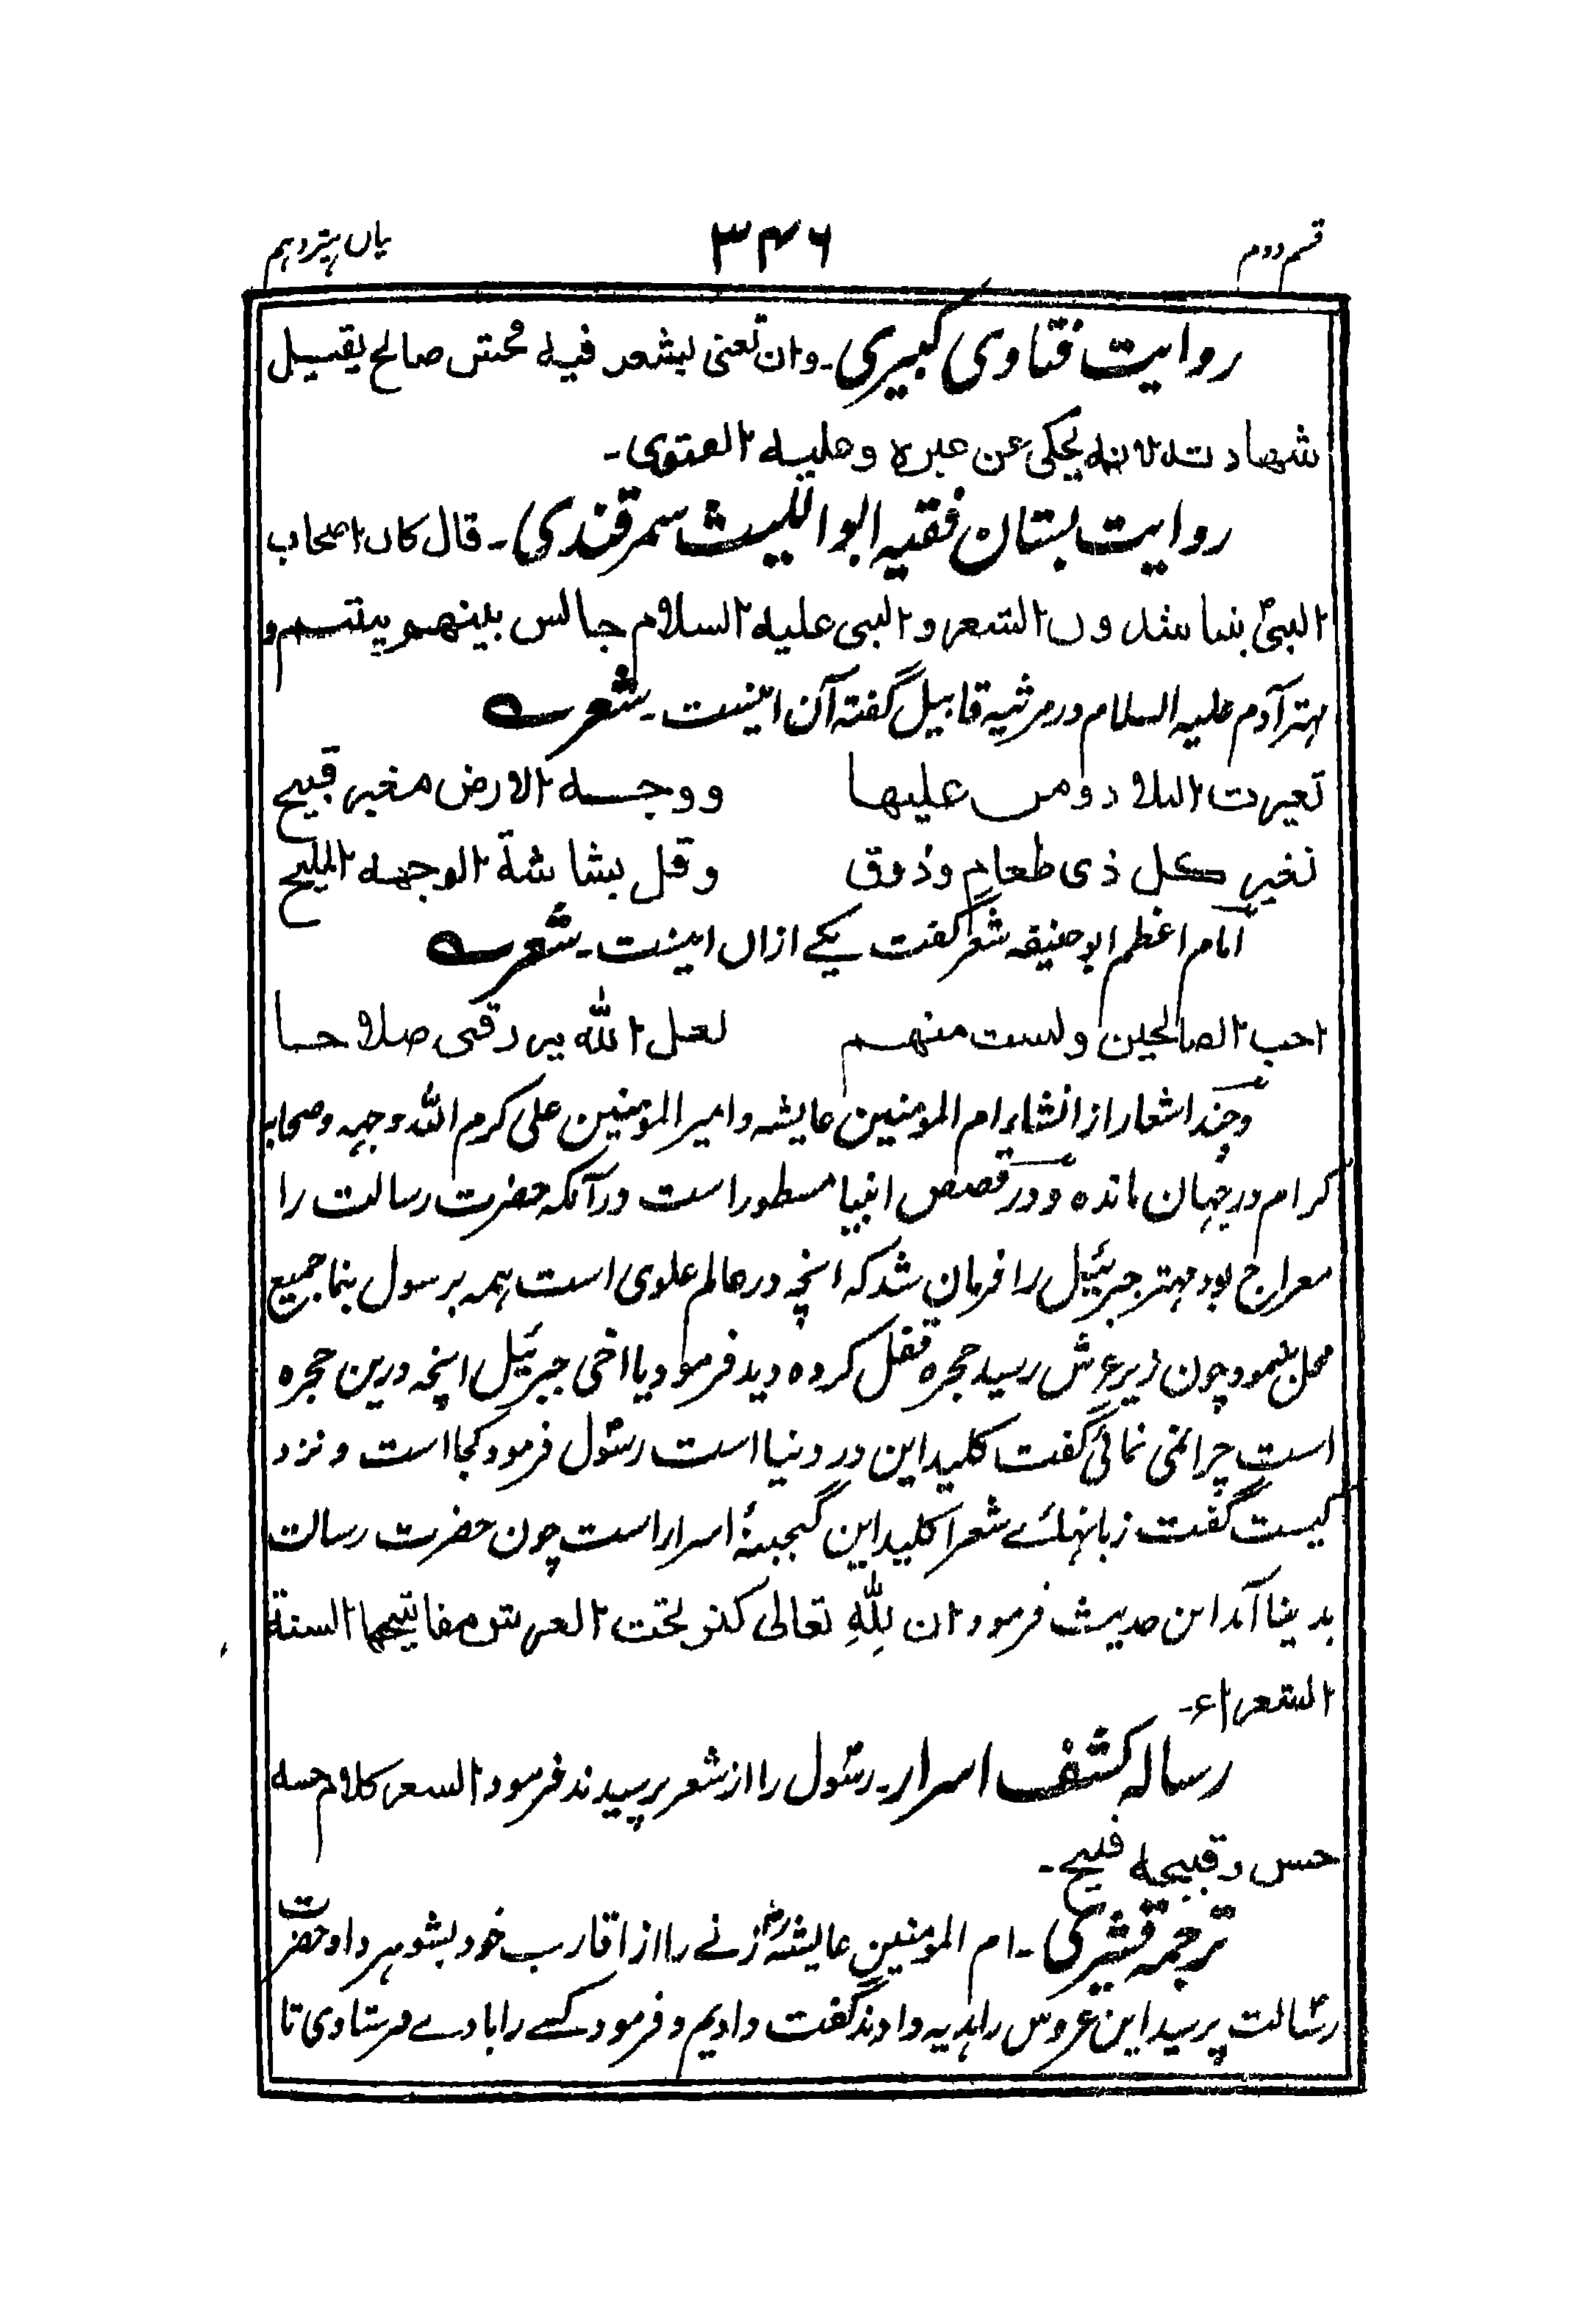 قسم دوم ۳۴۶ بیان ہیزدہم
روایت فتاوی کبیری۔ وان تغنی بشعر فیه فحش صالح یقبل
شهادته لانه یحکی عن غیره وعلیه الفتوی۔
روایت بستان فقیہ ابواللیث سمرقندی۔ قال کان اصحاب
النبیؐ یتناشدون الشعر والنبی علیه السلام جالس بینهم یتبسم و
مہتر آدم علیہ السلام در مرثیہ قابیل گفتہ آن اینست۔ شعر
تغیرت البلاد ومن علیها ووجه الارض مغبر قبیح
تغیر کل ذی طعام وذوق وقل بشاشة الوجه الملیح
امام اعظم ابوحنیفہ شعر گفت یکے ازاں اینست۔ شعر
احب الصالحین ولست منهم لعل الله یرزقنی صلاحا
وچند اشعار از انشاء ام المومنین عایشہ وامیر المؤمنین علی کرم اللہ وجہہ وصحابہ
کرام در جہان ماندہ و در قصص انبیا مسطور است در آنکہ حضرت رسالت را
معراج بود مہتر جبرئیل را فرمان شد کہ انچہ در عالم علوی است ہمہ بر سول بنما جمیع
محل بنمود چون زیر عرش رسید حجرہ قفل کردہ دید فرمود یا اخی جبرئیل انچہ درین حجرہ
است چرا نمی نمائی گفت کلید این در دنیا است رسول فرمود کجا است و نزد
کیست گفت زبانہائے شعرا کلید این گنجینۂ اسرار است چون حضرت رسالت
بدنیا آمد این حدیث فرمود ان لله تعالی کنز تحت العرش مفاتیحها السنة
الشعراء۔
رسالہ کشف اسرار۔ رسول را از شعر پرسیدند فرمود الشعر کلام حسنه
حسن وقبیحه قبیح۔
ترجمہ قشیری۔ ام المومنین عایشہؓ زنے را از اقارب خود بشوہر داد حضرت
رسالت پرسید این عروس را ہدیہ دادند گفت دادیم و فرمود کسے را بادے فرستادی تا